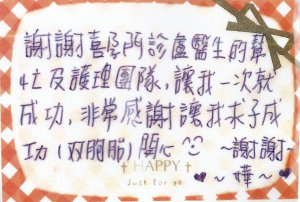 謝謝喜風門診盧醫生的幫
忙及護理團隊,讓我一次就
成功,非常感謝讓我求子成
功(双胞胎)開心 ~謝謝~
✝HAPPY✝
Just for yo
~嬅~